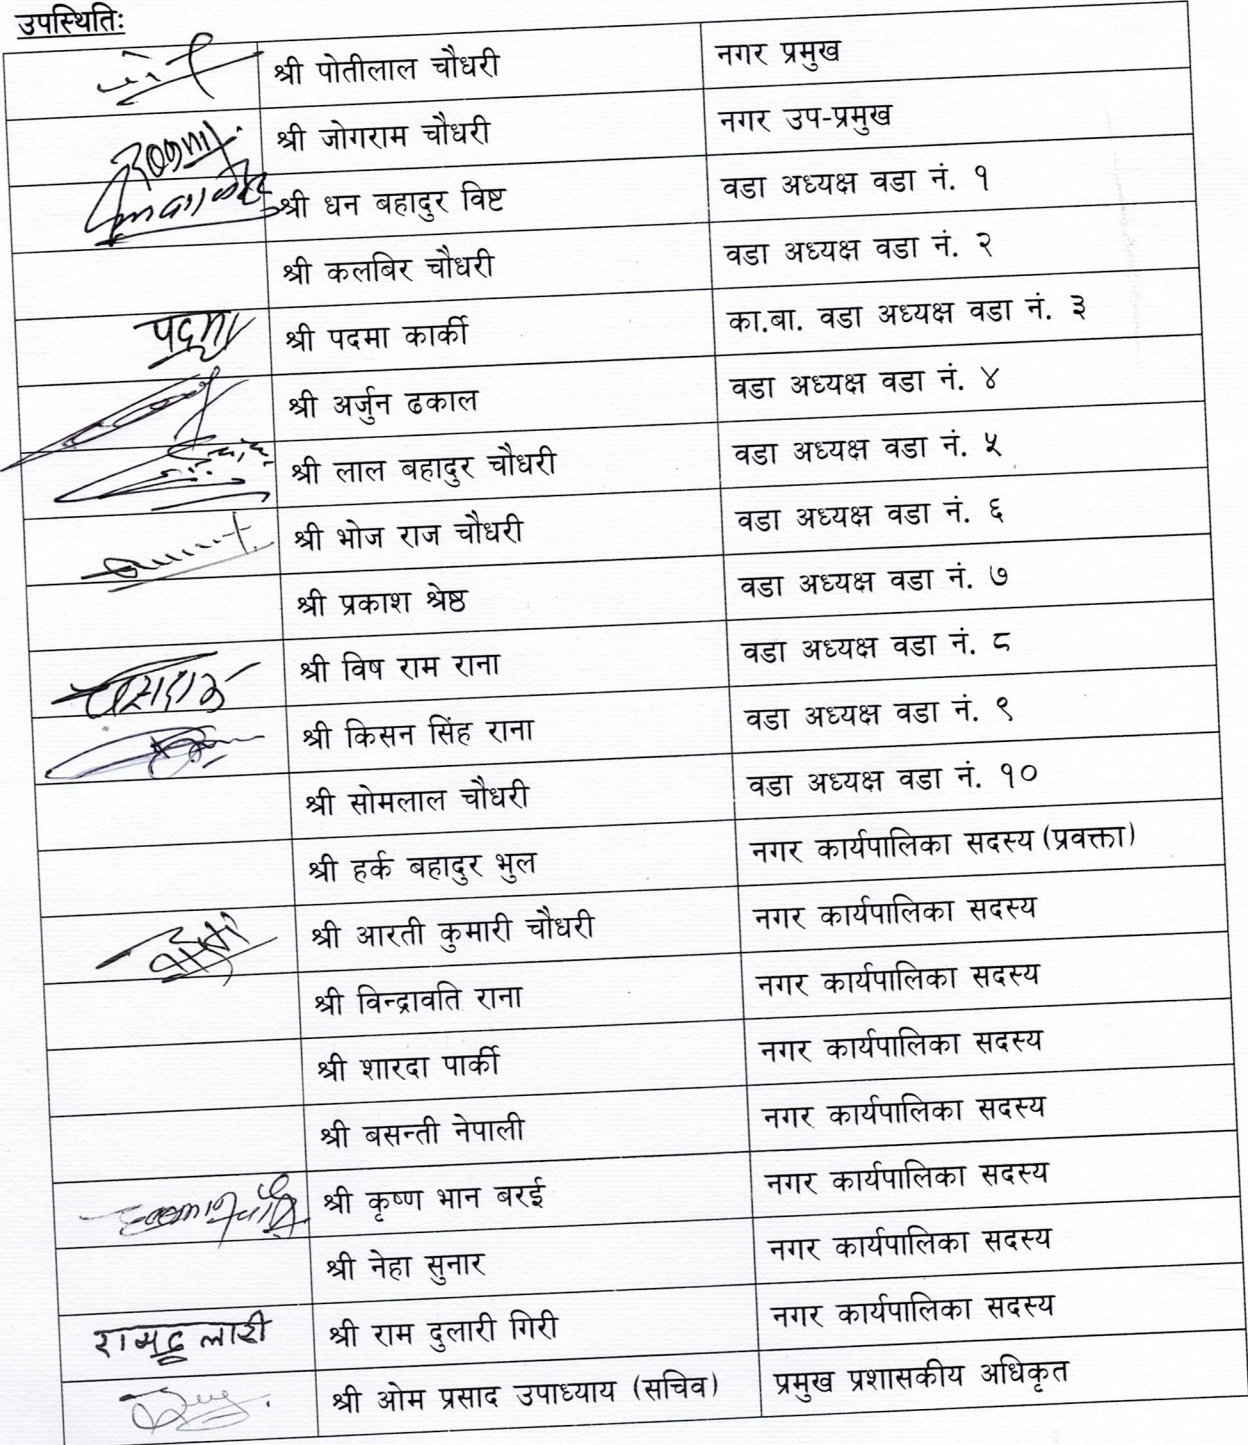 उपस्थितिः
श्री पोतीलाल चौधरी नगर प्रमुख
श्री जोगराम चौधरी नगर उप-प्रमुख
श्री धन बहादुर विष्ट वडा अध्यक्ष वडा नं. १
श्री कलबिर चौधरी वडा अध्यक्ष वडा नं. २
पदमा श्री पदमा कार्की का.बा. वडा अध्यक्ष वडा नं. ३
श्री अर्जुन ढकाल वडा अध्यक्ष वडा नं. ४
श्री लाल बहादुर चौधरी वडा अध्यक्ष वडा नं. ५
श्री भोज राज चौधरी वडा अध्यक्ष वडा नं. ६
श्री प्रकाश श्रेष्ठ वडा अध्यक्ष वडा नं. ७
श्री विष राम राना वडा अध्यक्ष वडा नं. ८
श्री किसन सिंह राना वडा अध्यक्ष वडा नं. ९
श्री सोमलाल चौधरी वडा अध्यक्ष वडा नं. १०
श्री हर्क बहादुर भुल नगर कार्यपालिका सदस्य (प्रवक्ता)
श्री आरती कुमारी चौधरी नगर कार्यपालिका सदस्य
श्री विन्द्रावति राना नगर कार्यपालिका सदस्य
श्री शारदा पार्की नगर कार्यपालिका सदस्य
श्री बसन्ती नेपाली नगर कार्यपालिका सदस्य
श्री कृष्ण भान बरई नगर कार्यपालिका सदस्य
श्री नेहा सुनार नगर कार्यपालिका सदस्य
रामदुलारी श्री राम दुलारी गिरी नगर कार्यपालिका सदस्य
श्री ओम प्रसाद उपाध्याय (सचिव) प्रमुख प्रशासकीय अधिकृत